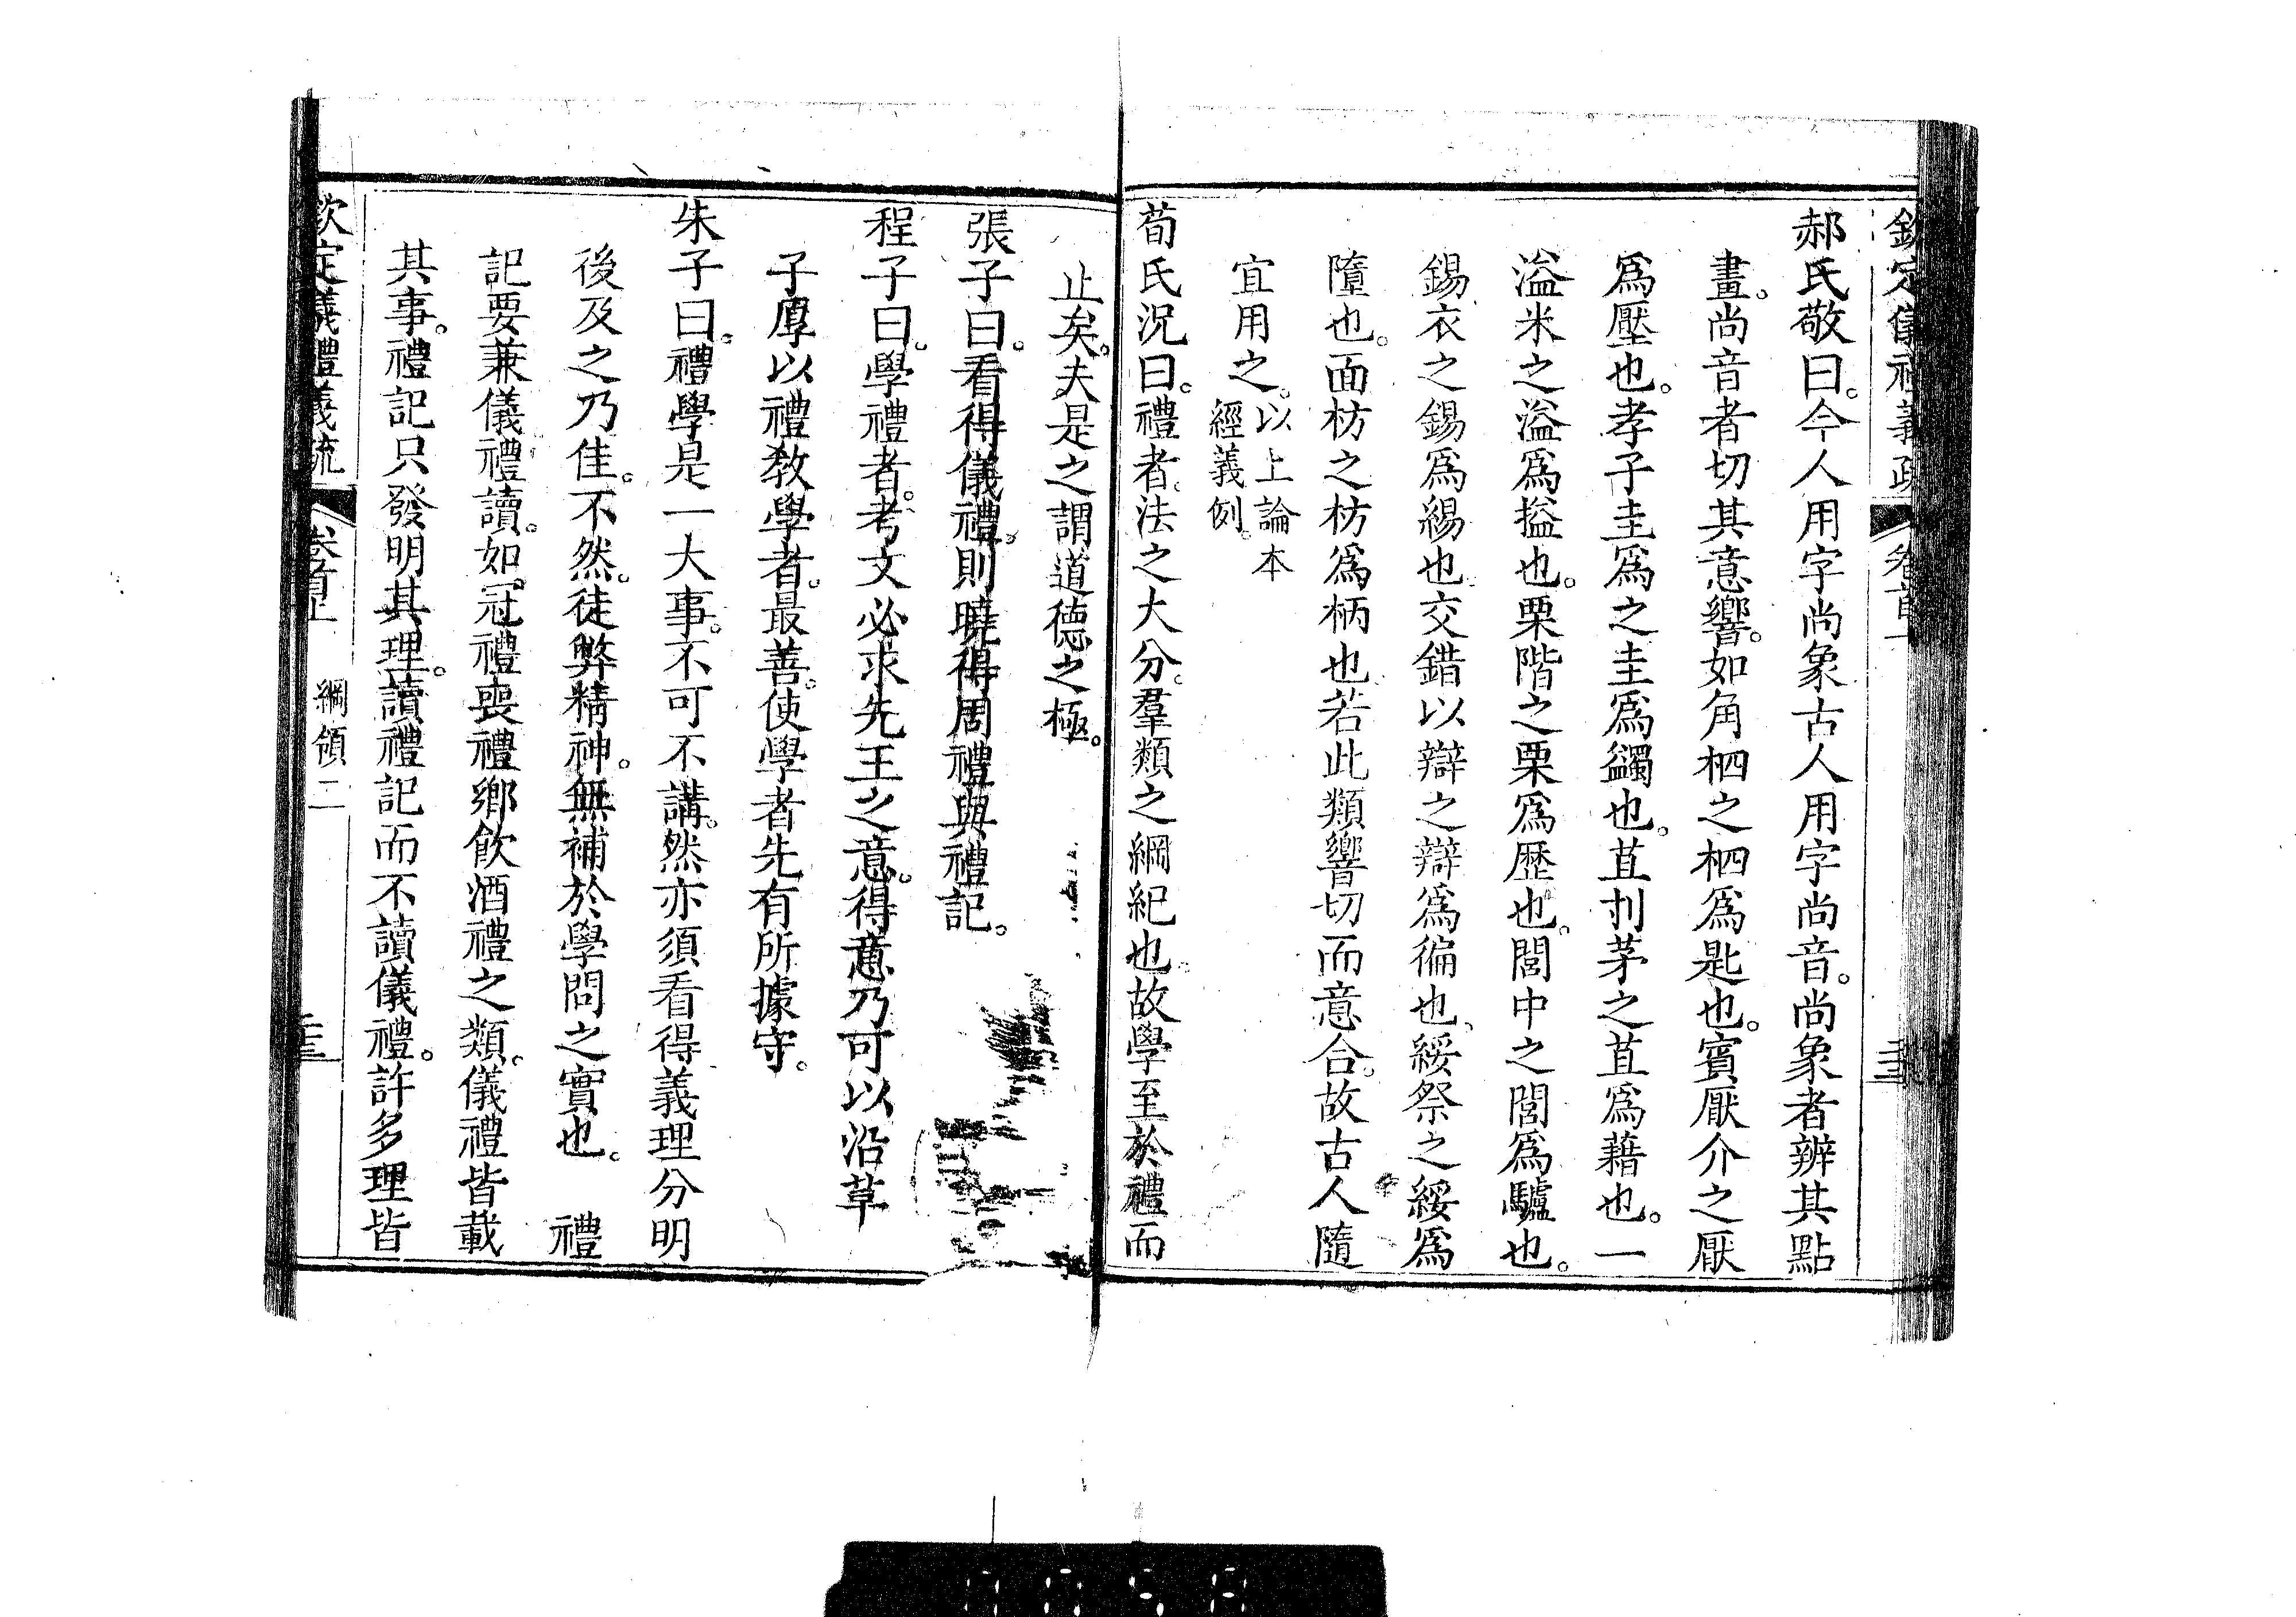 欽定儀禮義疏 卷首上
郝氏敬曰。今人用字尚象古人用字尚音。尚象者辨其點
畫。尚音者切其意響。如角柶之柶爲匙也。賓厭介之厭
爲壓也。孝子圭爲之圭爲蠲也。苴刌茅之苴爲藉也。一
溢米之溢爲搤也。栗階之栗爲歷也。閭中之閭爲驢也。
錫衣之錫爲緆也。交錯以辯之辯爲徧也。綏祭之綏爲
隳也。面枋之枋爲柄也。若此類響切而意合。故古人隨
宜用之。以上論本
經義例。
荀氏況曰。禮者。法之大分。羣類之綱紀也。故學至於禮而
止矣。夫是之謂道德之極。
張子曰。看得儀禮。則曉得周禮與禮記。
程子曰。學禮者。考文必求先王之意。得意乃可以沿革
子厚以禮敎學者。最善。使學者先有所據守。
朱子曰。禮學是一大事。不可不講。然亦須看得義理分明
後及之乃佳。不然。徒弊精神。無補於學問之實也。 禮
記要兼儀禮讀。如冠禮喪禮鄉飲酒禮之類。儀禮皆載
其事。禮記只發明其理。讀禮記而不讀儀禮。許多理皆
欽定儀禮義疏 卷首上 綱領二